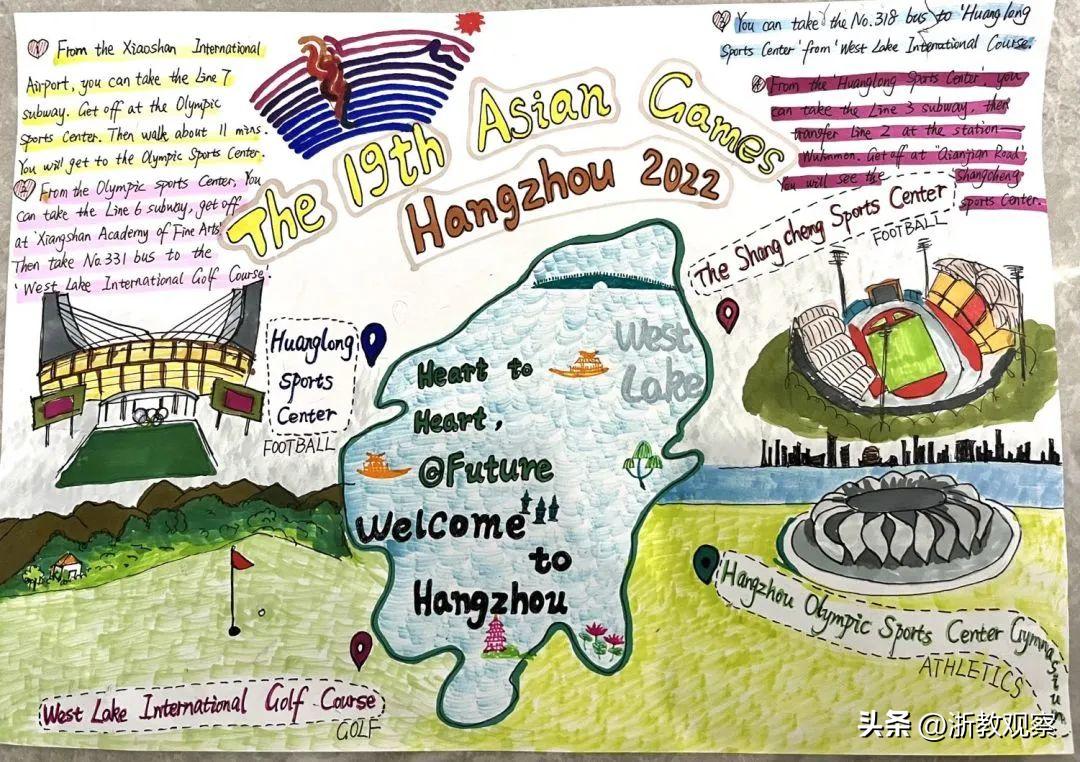 ① From the Xiaoshan International
Airport, you can take the Line 7
subway. Get off at the Olympic
Sports Center. Then walk about 11 mins.
You will get to the Olympic Sports Center.
② From the Olympic sports Center, You
can take the Line 6 subway, get off
at 'Xiangshan Academy of Fine Arts'
Then take No.331 bus to the
'West Lake International Golf Course'.
The 19th Asian Games
Hangzhou 2022
③ You can take the No.318 bus to 'Huanglong
Sports Center' from 'West Lake International Course.
④ From the 'Huanglong Sports Center', you
can take the Line 3 subway, then
transfer Line 2 at the station—
Wulinmon. Get off at "Qianjian Road'
You will see the Shangcheng
sports Center.
The Shangcheng Sports Center
FOOTBALL
Huanglong
Sports
Center
FOOTBALL
West
Lake
Heart to
Heart,
@Future
Welcome
to
Hangzhou
Hangzhou Olympic Sports Center Gymnasium
ATHLETICS
West Lake International Golf Course
GOLF
头条 @浙教观察